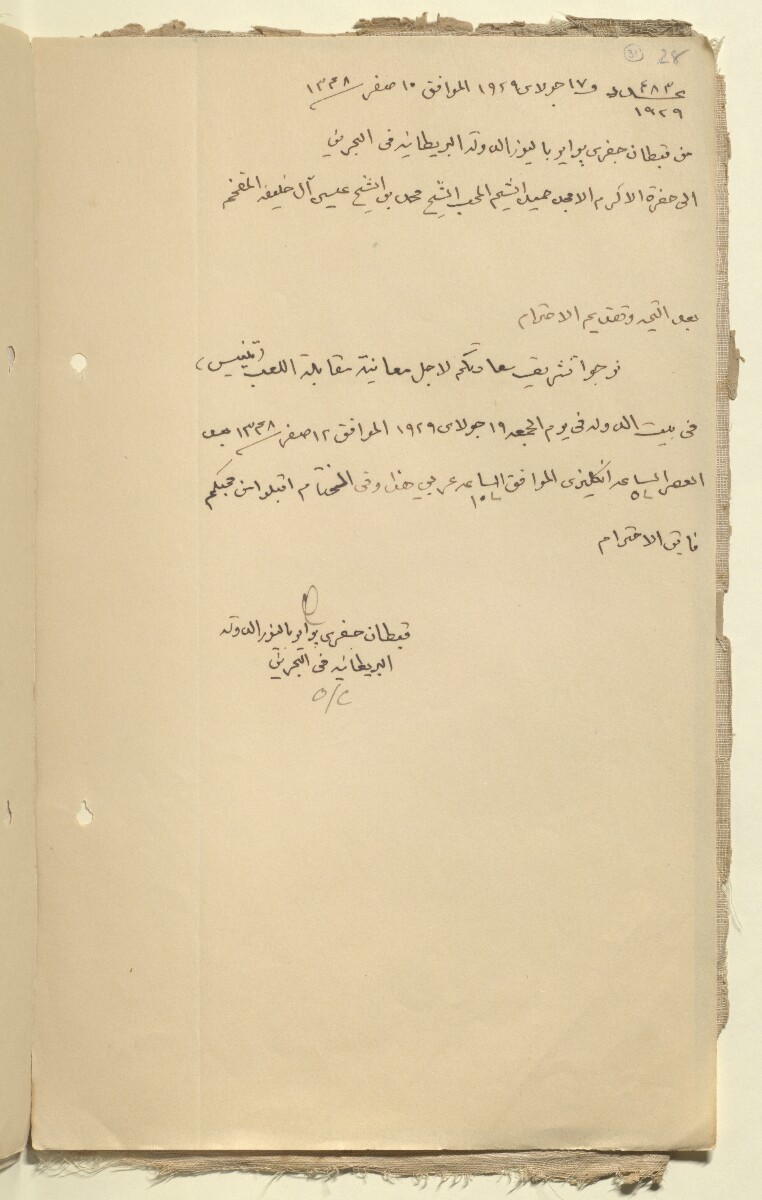 31 28
٤٨٣ و ١٧ جولاى ١٩٢٩ الموافق ١٠ صفر ١٣٤٨
١٩٢٩
من قبطان جفرى پرايور باليوز الدولة البريطانية فى البحرين
الى حضرة الاكرم الامجد حميد الشيم المحب الشيخ محمد بن الشيخ عيسى آل خليفه المفخم
بعد التحية وتقديم الاحترام
نرجوا تشريف سعادتكم لاجل معاينة مقابلة اللعب (تينيس)
فى بيت الدولة فى يوم الجمعه ١٩ جولاى ١٩٢٩ الموافق ١٢ صفر ١٣٤٨ بعد
العصر الساعه ٥ انكليزى الموافق الساعه ١٠ عربي هذا وفى الختام اقبلوا من محبكم
فايق الاحترام
قبطان جفرى پرايور باليوز الدولة
البريطانية فى البحرين